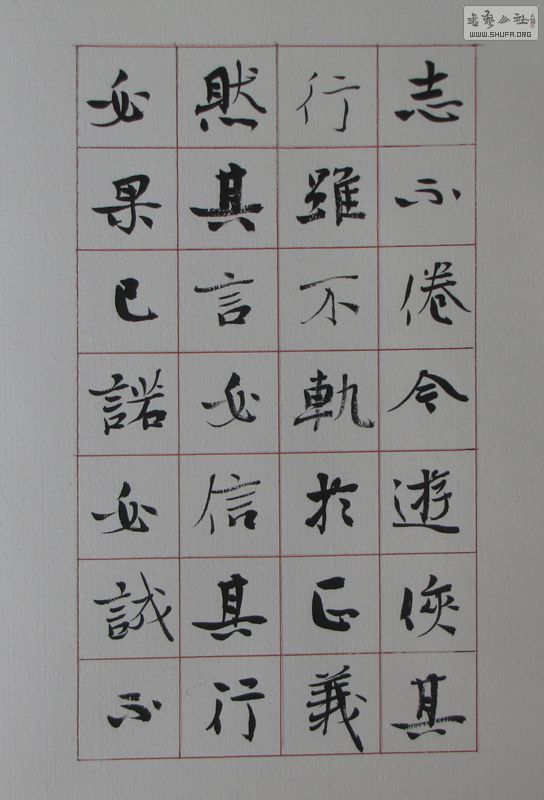 志不倦今遊俠其
行雖不軌於正義
然其言必信其行
必果已諾必誠不
書藝公社
WWW.SHUFA.ORG